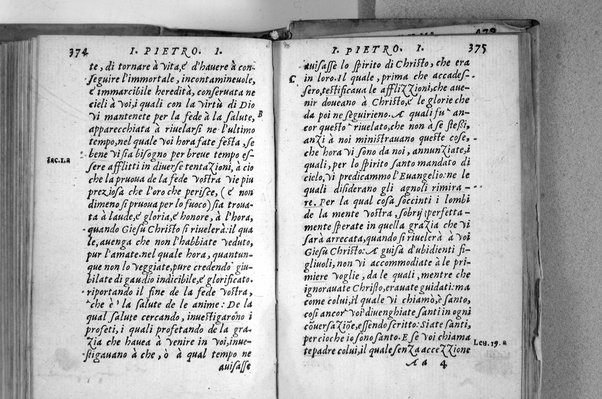 374 I. PIETRO. I.
te, di tornare à vita, e d'hauere à con-
seguire l'immortale, incontamineuole,
e immarcibile heredità, conseruata ne
cieli à voi, i quali con la virtù di Dio
vi mantenete per la fede à la salute,
B
apparecchiata à riuelarsi ne l'ultimo
tempo, nel quale voi hora fate festa, se
bene vi sia bisogno per breue tempo es-
Iac. 1. a
sere afflitti in diuerse tentazioni, à cio
che la pruoua de la fede vostra vie piu
preziosa che l'oro che perisce, (e non
dimeno si pruoua per lo fuoco) sia troua-
ta à laude, e gloria, e honore, à l'hora,
quando Giesù Christo si riuelerà: il qua
le, auenga che non l'habbiate veduto,
pur l'amate. nel quale hora, quantun-
que non lo veggiate, pure credendo giu-
bilate di gaudio indicibile, e glorificato.
riportando il fine de la fede vostra,
che è la salute de le anime: De la
qual salute cercando, inuestigarono i
profeti, i quali profetando de la gra-
zia che hauea à venire in voi, inue-
stigauano à che, ò à qual tempo ne
auisasse
I. PIETRO. I. 375
auisasse lo spirito di Christo, che era
C
in loro. Il quale, prima che accades-
sero, testificaua le afflizzioni, che aue-
nir doueano à Christo, e le glorie che
da poi ne seguirieno. A quali fu an-
cor questo riuelato, che non à se stessi,
anzi à noi ministrauano queste cose,
che hora vi sono da noi, annunziate, i
quali, per lo spirito santo mandato di
cielo, vi predicammo l'Euangelio: ne le
quali disiderano gli agnoli rimira-
re. Per la qual cosa soccinti i lombi
de la mente vostra, sobrij, perfetta-
mente sperate in quella grazia che vi
sarà arrecata, quando si riuelerà à voi
Giesù Christo: A guisa d'ubidienti fi-
gliuoli, non vi accommodiate à le pri-
miere voglie, da le quali, mentre che
ignorauate Christo, erauate guidati: ma
come colui, il quale vi chiamò, è santo,
così ancor voi diuenghiate santi in ogni
cōuersaziōe, essendo scritto: Siate santi,
per cioche io sono santo. E se voi chiama
Leu. 19. a
te padre colui, il quale senza accezzione
Aa 4